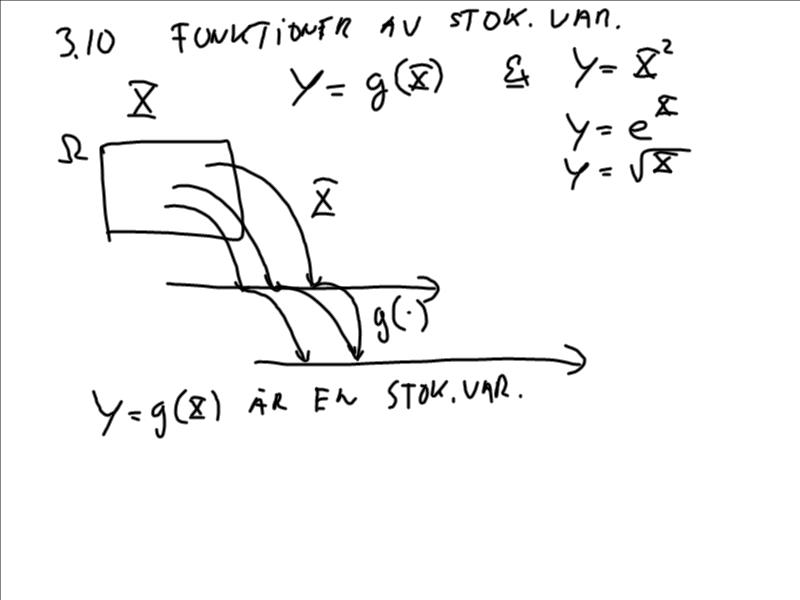 3.10 FUNKTIONER AV STOK. VAR.
Y = g(X) Ex Y = X²
Y = e^X
Y = √X
X
Ω
X
g(·)
Y = g(X) ÄR EN STOK. VAR.